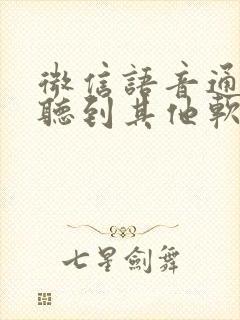 微信語音通
聽到其他軟
七星劍舞